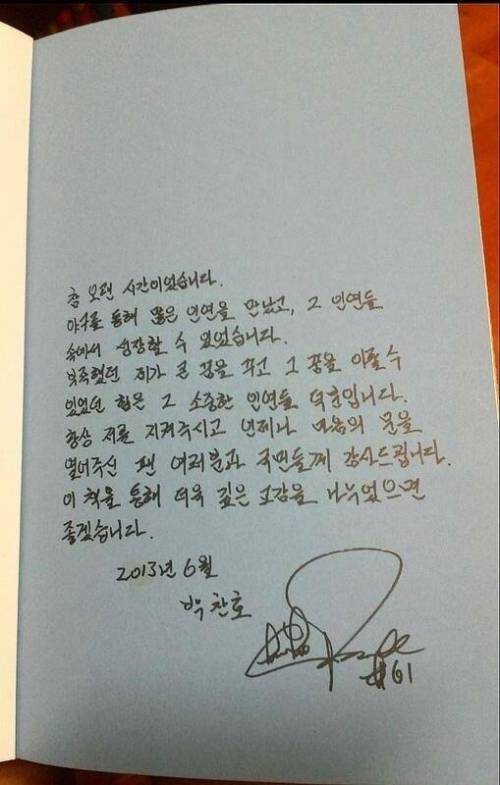 참 오랜 시간이었습니다.
야구를 통해 많은 인연을 만났고, 그 인연들
속에서 성장할 수 있었습니다.
부족했던 제가 큰 꿈을 꾸고 그 꿈을 이룰 수
있었던 힘은 그 소중한 인연들 덕분입니다.
항상 저를 지켜주시고 언제나 마음의 문을
열어주신 팬 여러분과 국민들께 감사드립니다.
이 책을 통해 더욱 깊은 교감을 나누었으면
좋겠습니다.
2013년 6월
박찬호
#61